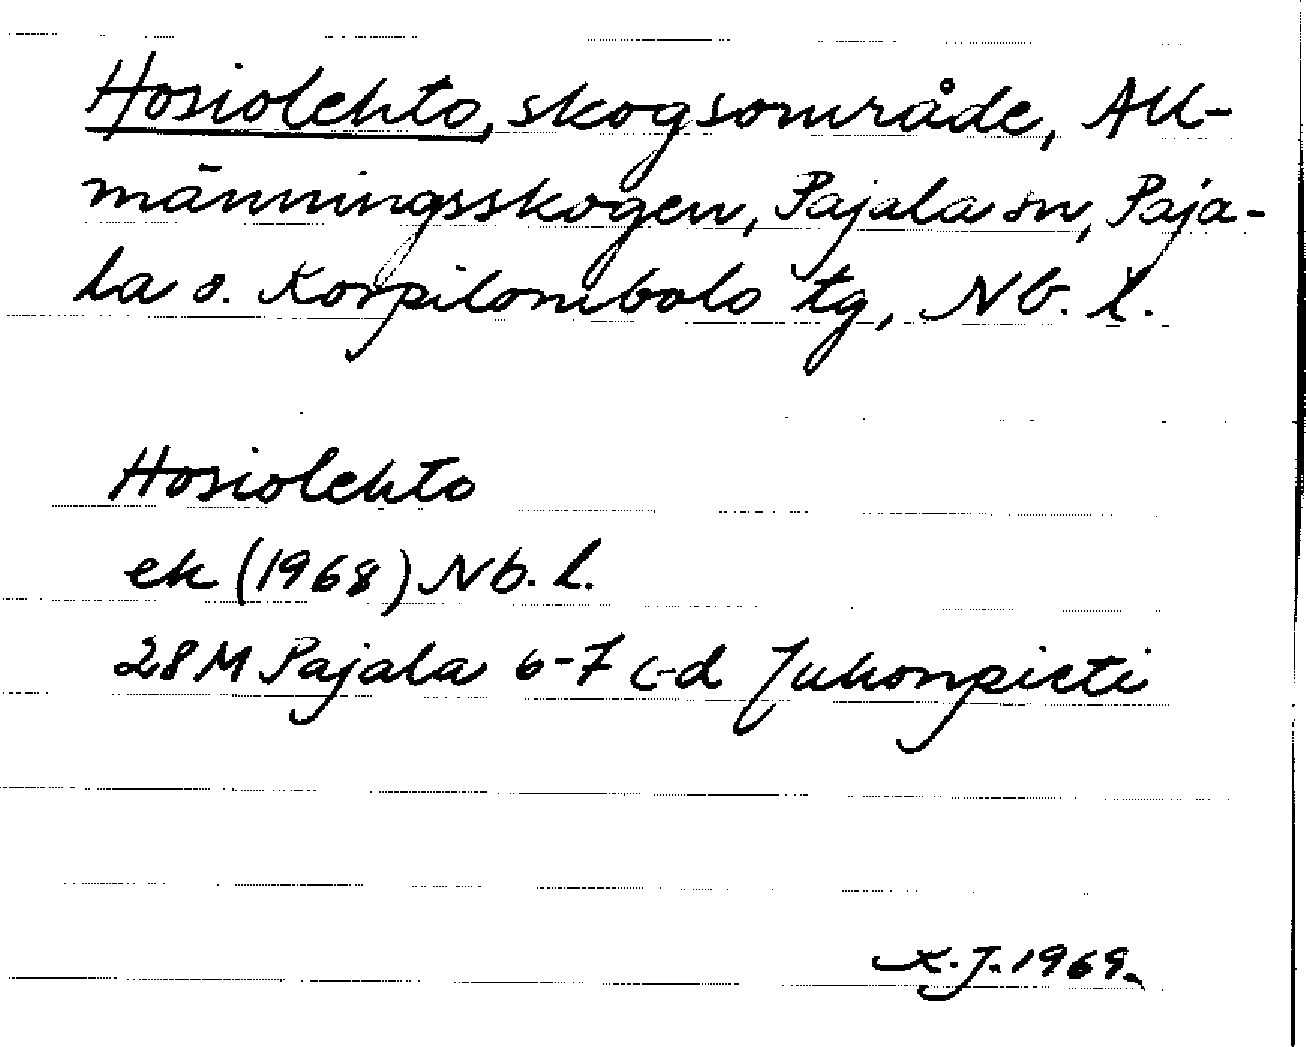 Hosiolehto, skogsområde, All-
männingsskogen, Pajala sn, Paja-
la o. Korpilombolo tg, Nb. l.
Hosiolehto
ek (1968) Nb. l.
28M Pajala 6-7 c-d Juhonpieti
K.J. 1969.